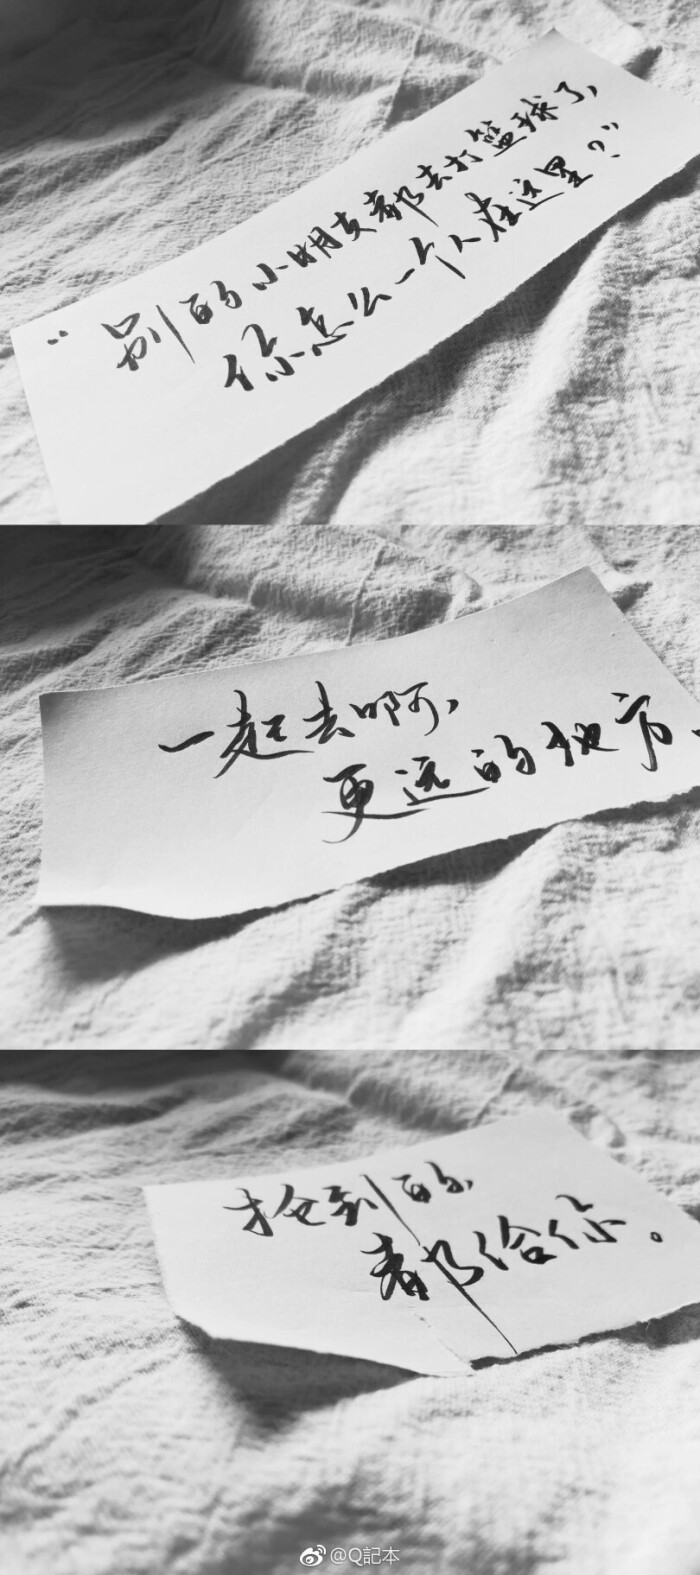 “别的小朋友都去打篮球了，
你怎么一个人在这里？”
一起去啊，
更远的地方。
抢到的
都给你。
@Q記本